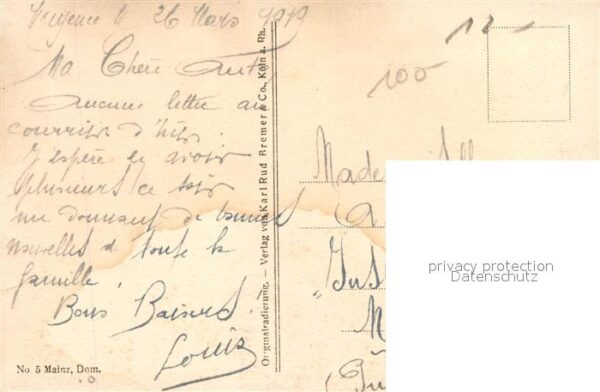 le 26 Mars 1919
Ma Chère
Aucune lettre au
courrier d'hier.
J'espère en avoir
plusieurs ce soir
me donnant de bonnes
nouvelles de toute la
famille.
Bons Baisers.
Louis
No 5 Mainz, Dom.
Originalradierung. — Verlag von Karl Rud. Bremer & Co., Köln a. Rh.
12
100
Made
privacy protection
Datenschutz